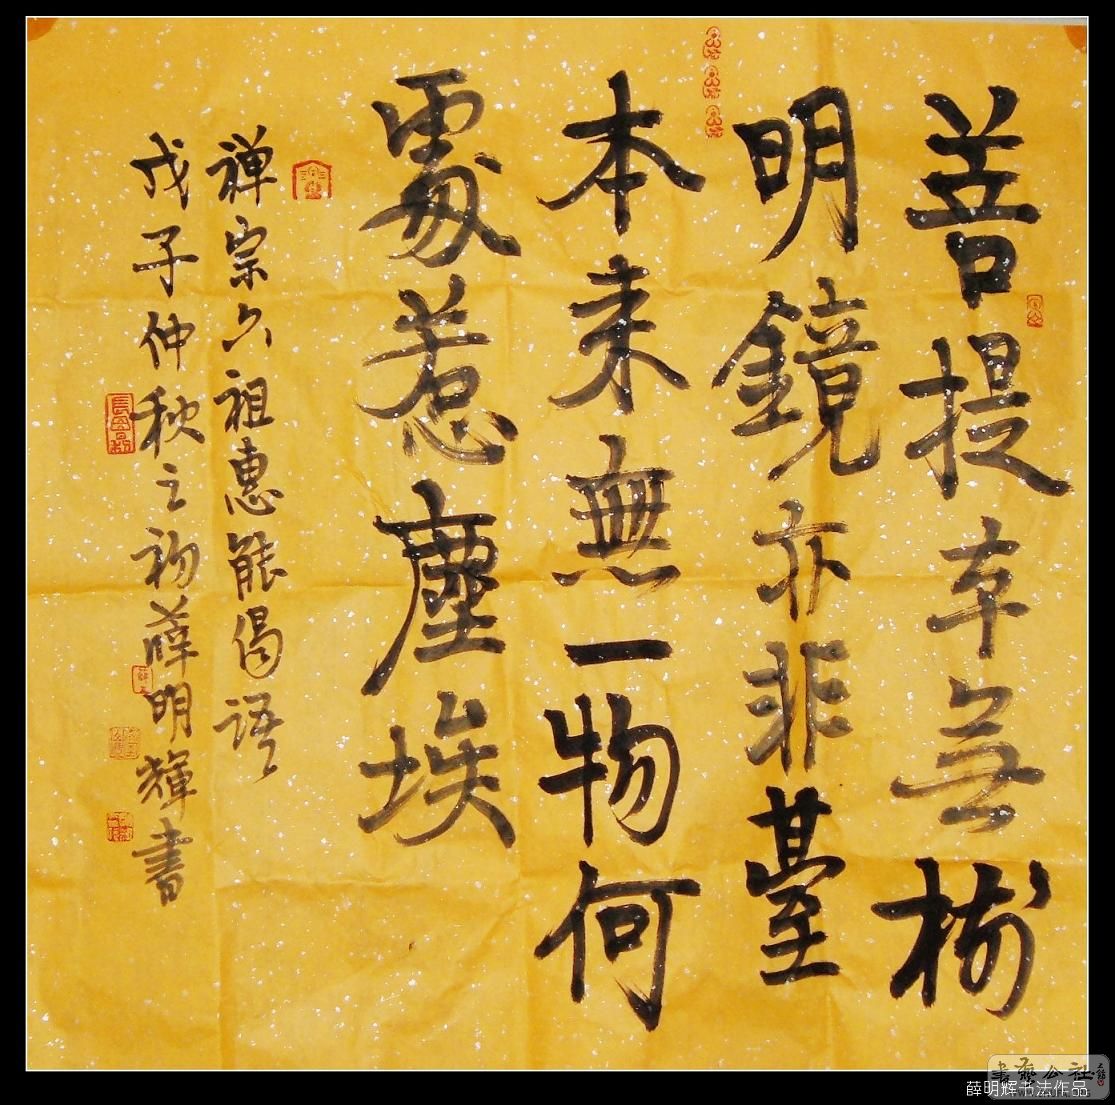 菩提本无樹
明鏡亦非臺
本来無一物何
處惹塵埃
禅宗六祖惠能偈語
戊子仲秋之初薛明輝書
書藝公社
薛明辉书法作品